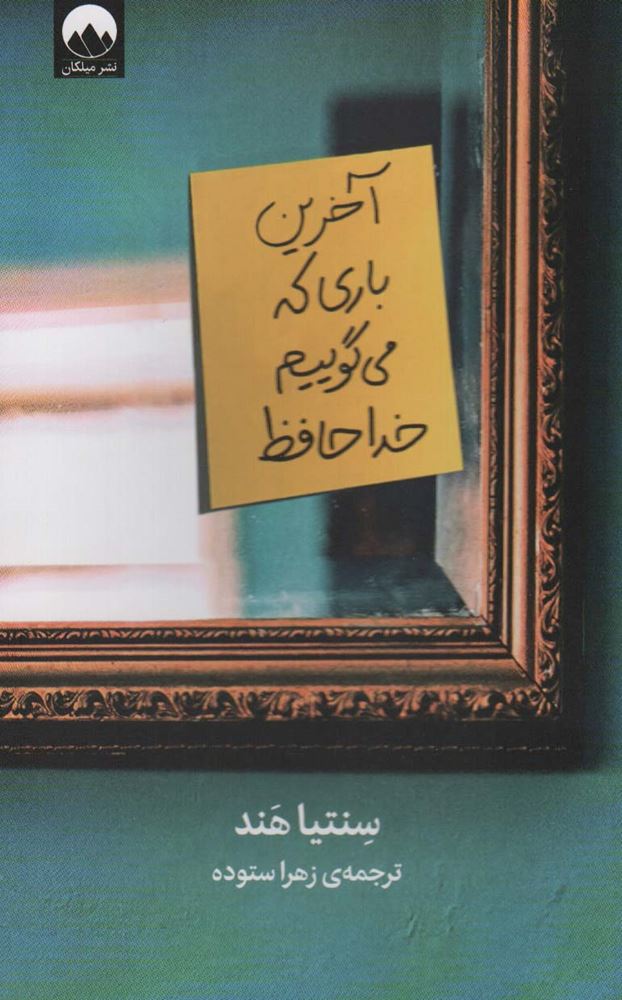 نشر میلکان
آخرین
باری که
می‌گوییم
خداحافظ
سِنتیا هَند
ترجمه‌ی زهرا ستوده